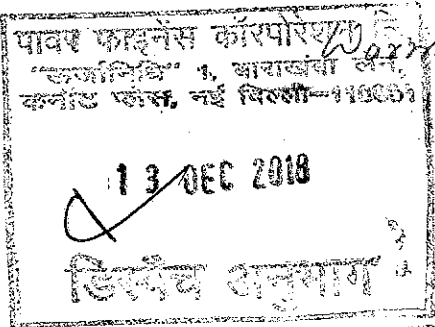 पावर फाइनेंस कॉरपोरेशन
"ऊर्जानिधि" 1, बाराखंबा लेन,
कनॉट प्लेस, नई दिल्ली-110001
13 DEC 2018
डिस्पैच अनुभाग